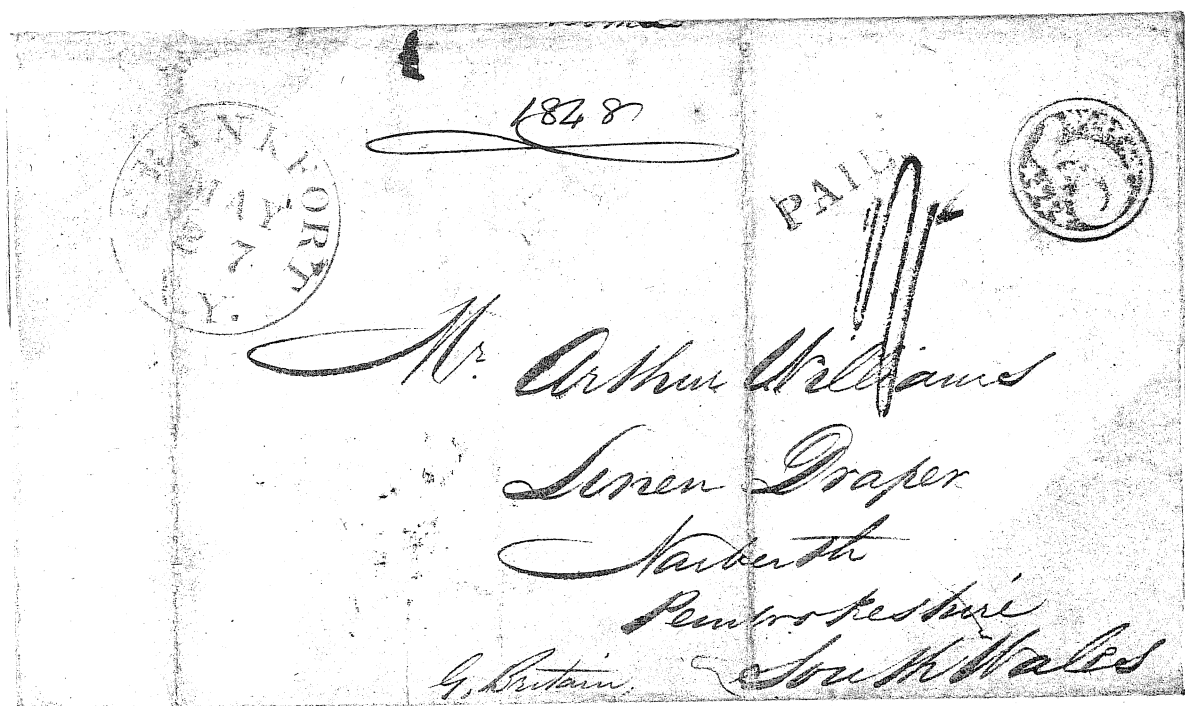 1848
FRANKFORT
MAY
7
Y.
PAID
Mr. Arthur Williams
Linen Draper
Narberth
Pembrokeshire
South Wales
G. Britain